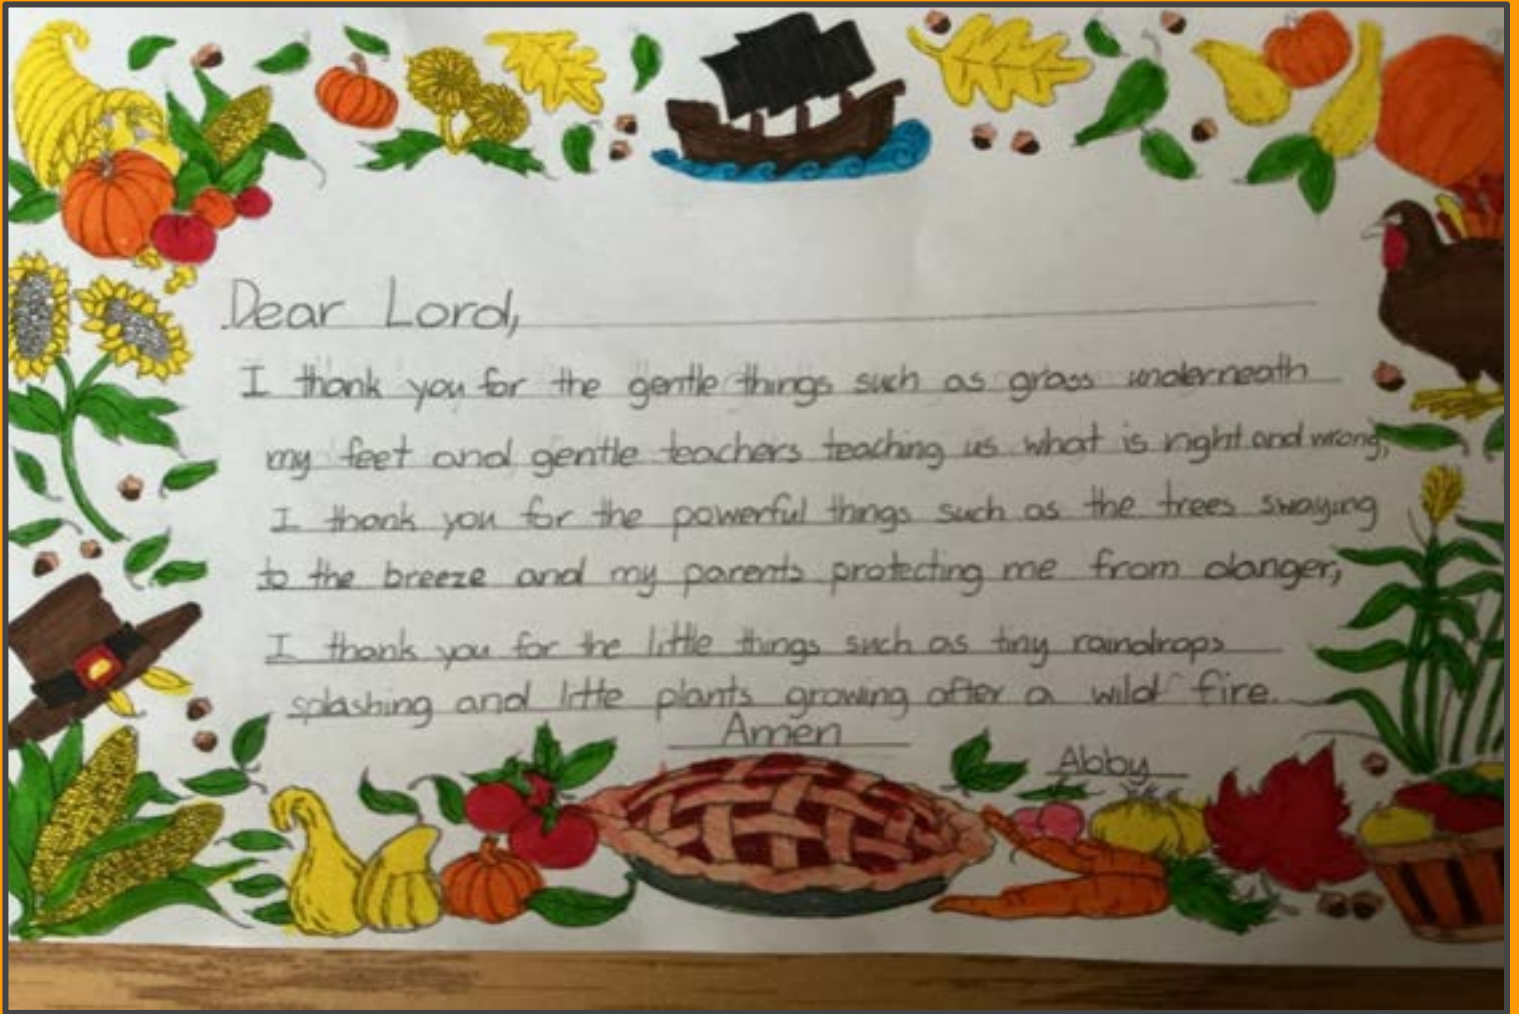 Dear Lord,
I thank you for the gentle things such as grass underneath
my feet and gentle teachers teaching us what is right and wrong,
I thank you for the powerful things such as the trees swaying
to the breeze and my parents protecting me from danger,
I thank you for the little things such as tiny raindrops
splashing and little plants growing after a wild fire.
Amen
Abby